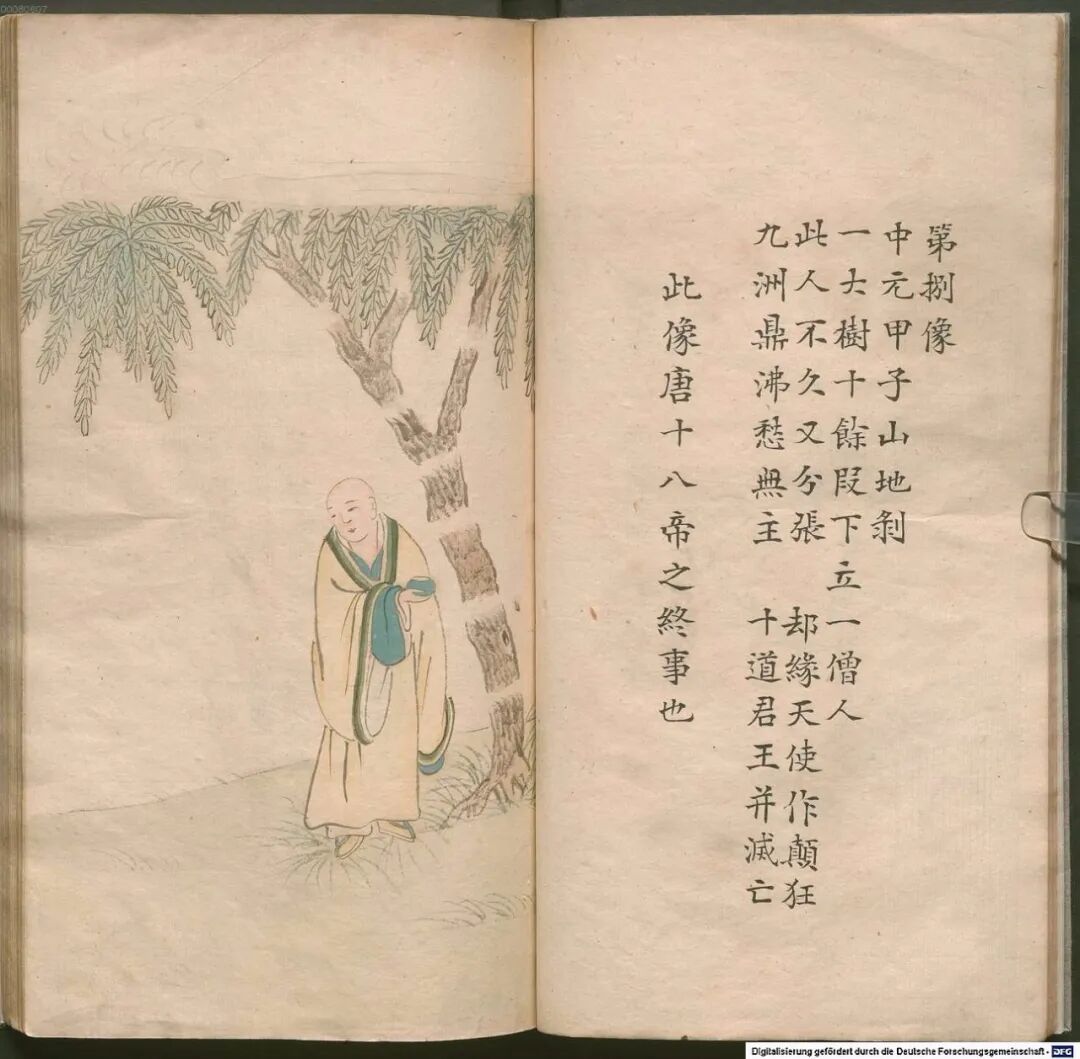 第捌像
中元甲子山地剝
一大樹十餘段下立一僧人
此人不久又分張 却緣天使作顛狂
九洲鼎沸愁無主 十道君王并滅亡
此像唐十八帝之終事也
Digitalisierung gefördert durch die Deutsche Forschungsgemeinschaft - DFG